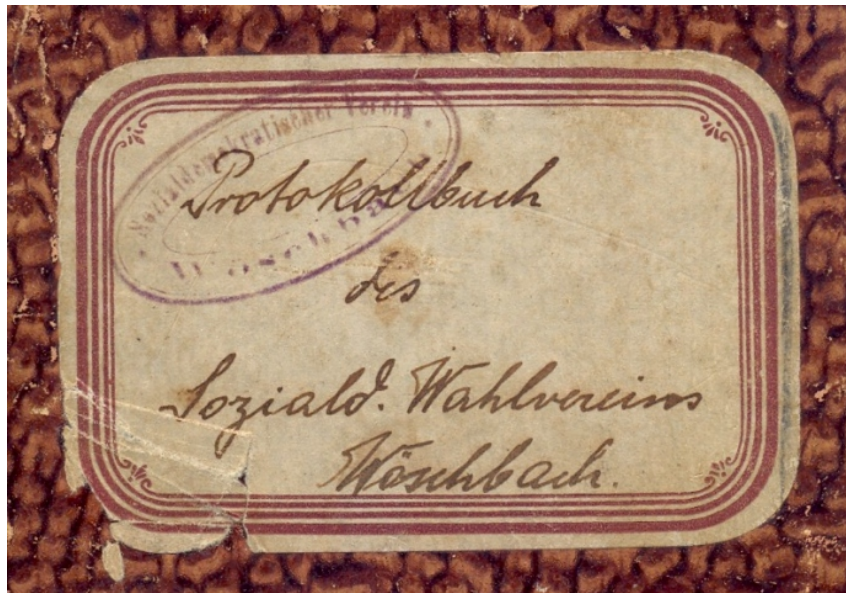 Sozialdemokratischer Verein
Wöschbach
Protokollbuch
des
Soziald. Wahlvereins
Wöschbach.